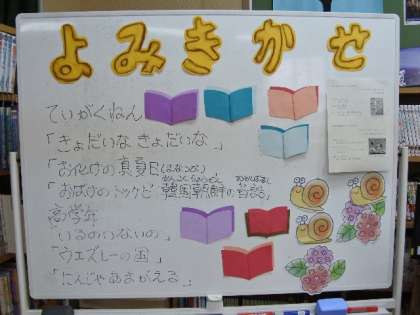 よみきかせ
ていがくねん
「きょだいな きょだいな」
「おばけの真夏日(まなつび)」
「おばけのトッケビ 韓国朝鮮の昔話」
高学年
「いるのいないの」
「ウエズレーの国」
「にんじゃあまがえる」